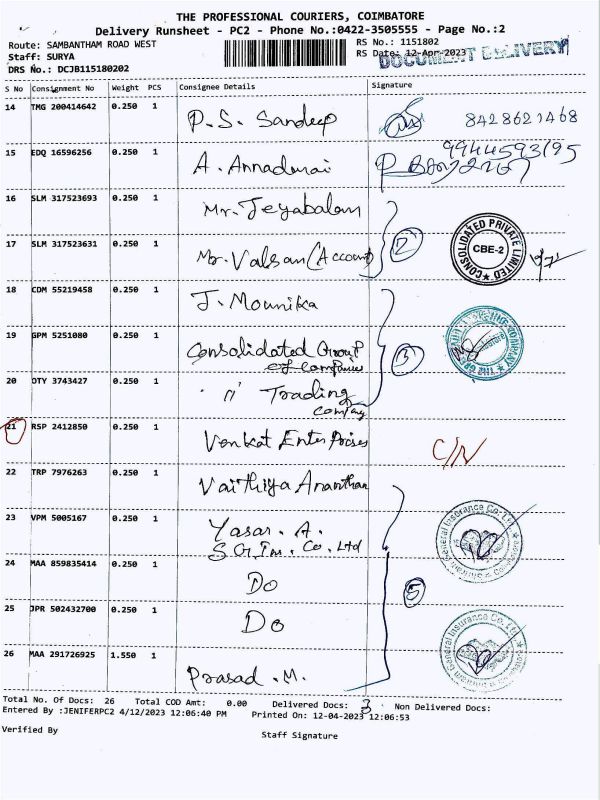 THE PROFESSIONAL COURIERS, COIMBATORE
Delivery Runsheet - PC2 - Phone No.:0422-3505555 - Page No.:2
Route: SAMBANTHAM ROAD WEST RS No.: 1151802
Staff: SURYA RS Date: 12-Apr-2023 DOCUMENT DELIVERY
DRS No.: DCJB115180202
S No Consignment No Weight PCS Consignee Details Signature
14 TMG 200414642 0.250 1 P. S. Sandeep 8428621468
9944593195
15 EDQ 16596256 0.250 1 A. Annadurai
16 SLM 317523693 0.250 1 Mr. Jeyabalan
17 SLM 317523631 0.250 1 Mr. Valsan (Account) 2 CONSOLIDATED PRIVATE LIMITED CBE-2
18 CDM 55219458 0.250 1 J. Mounika
19 GPM 5251080 0.250 1 Consolidated Group
of Companies 3
20 DTY 3743427 0.250 1 " Trading
Company
21 RSP 2412850 0.250 1 Venkat Enterprises C/N
22 TRP 7976263 0.250 1 Vaithiya Ananthan
23 VPM 5005167 0.250 1 Yasar. A.
S.G.In. Co. Ltd
24 MAA 859835414 0.250 1 Do
25 JPR 502432700 0.250 1 Do 5
General Insurance Co. Ltd
26 MAA 291726925 1.550 1 Prasad .M.
Total No. Of Docs: 26 Total COD Amt: 0.00 Delivered Docs: 3 Non Delivered Docs:
Entered By :JENIFERPC2 4/12/2023 12:06:40 PM Printed On: 12-04-2023 12:06:53
Verified By
Staff Signature